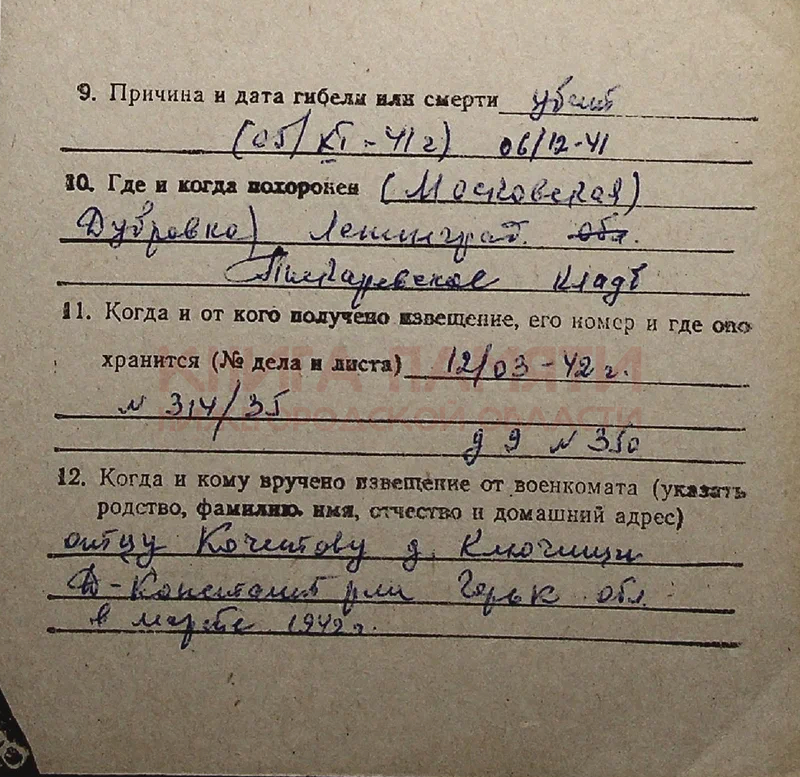 9. Причина и дата гибели или смерти убит
(05/XI-41г) 06/12-41
10. Где и когда похоронен (Московская
Дубровка) Ленинград. обл.
Пискаревское кладб
11. Когда и от кого получено извещение, его номер и где оно
хранится (№ дела и листа) 12/03-42г.
КНИГА ПАМЯТИ
N 314/35
НИЖЕГОРОДСКОЙ ОБЛАСТИ
д 9 N 350
12. Когда и кому вручено извещение от военкомата (указать
родство, фамилию, имя, отчество и домашний адрес)
отцу д. Ключищи
Д-Констант р-на Горьк обл
в марте 1942г.